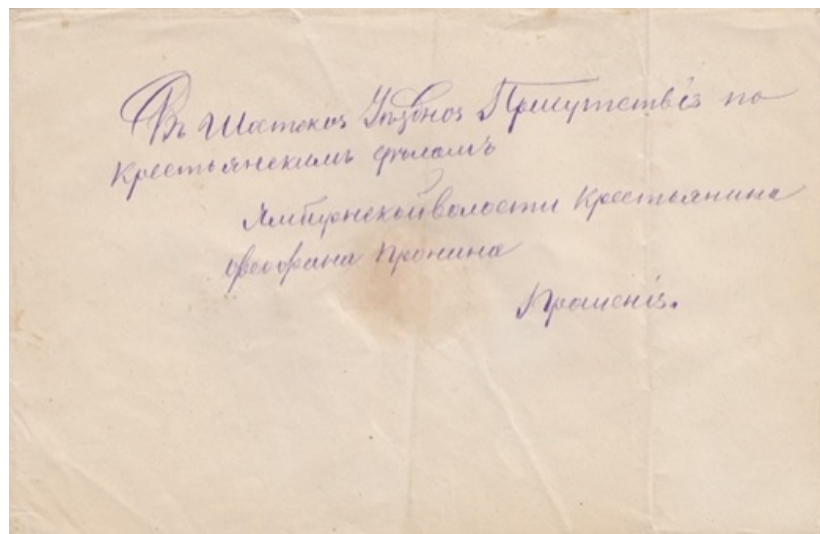 Въ Шатское Уѣздное Присутствіе по
крестьянскимъ дѣламъ
Ямбирнской волости Крестьянина
Феофана Пронина
Прошеніе.